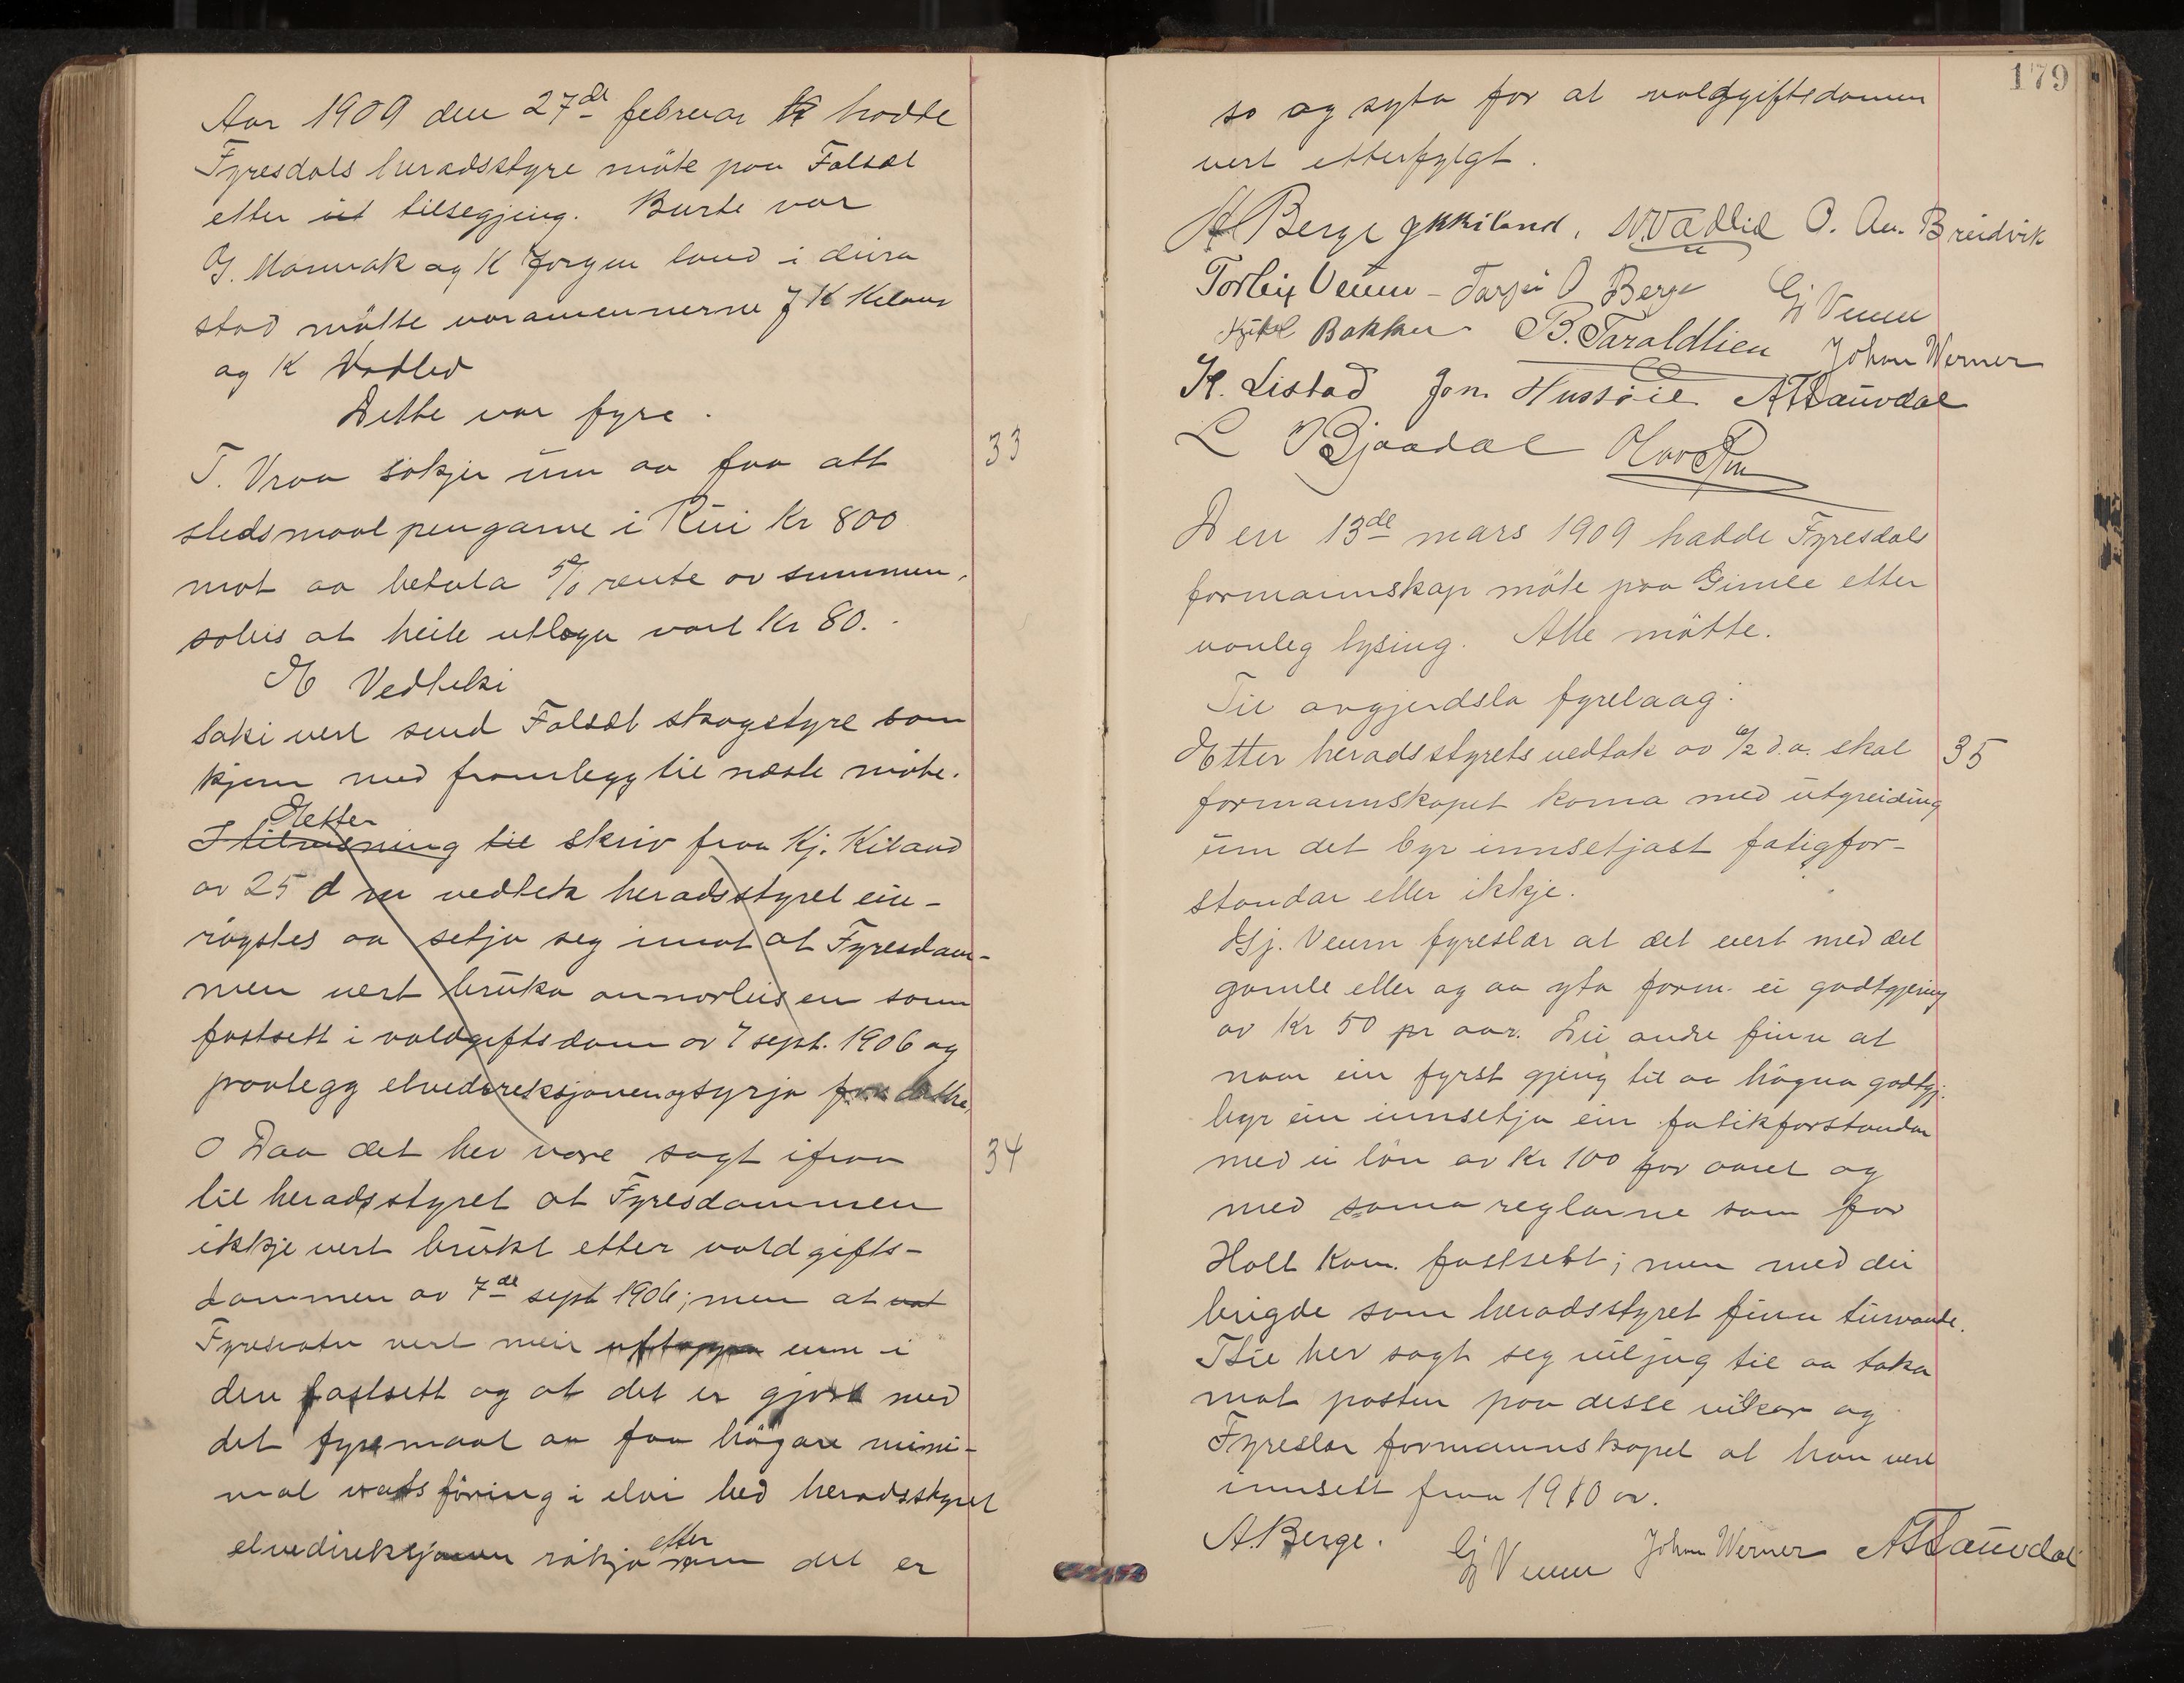 Aar 1909 den 27de februar hadde
Fyresdals heradsstyre möte paa Folsæt
etter tilsegjeing. Burte var
O. J. Momrak og K Jorgen land i deira
stad mötte varamennerne J K Kiland
og K Vadlid
Dette var fyre.
33
T. Vraa sökjer um aa faa att
stedsmaal pengarne i Rui Kr 800
mot aa betala 5% rente av summen,
soleis at heile utlega vart Kr 80.
Vedteke
Saki vert send Folsæt skogstyre som
kjem med framlegg til næste möte.
Etter
I tilvisning til skriv fraa Kj. Kiland
av 25 d m vedtek heradsstyret ein-
röystes aa setja seg imot at Fyresdam-
men vert bruka annorleis en som
fastsett i voldgiftsdom av 7 sept. 1906 og
paalegg elvedireksjonen og syrja for dette
34
Daa det hev vore sagt ifraa
til heradsstyret at Fyresdammen
ikkje vert brukt etter voldgifts-
dommen av 7de sept 1906; men at vat
Fyresvatn vert meir uftappa enn i
den fastsett og at det er gjort med
det fyremaal aa faa högare mini-
mal vatsföring i elvi bed heradsstyret
elvedireksjonen sökja etter om det er
179
so og syta for at voldgiftsdomen
vert etterfylgt.
H Berge JKKiland. N. Vadlid O. An. Breidvik
Torleif Veum - Tarjei O Berge Gj Veum
Bakken B. Taraldlien Johan Werner
K. Listad Jon Hussöie A T Lauvdal
L O Bjaadal
Den 13de mars 1909 hadde Fyresdals
formannskap möte paa Gimle etter
vanleg lysing. Alle mötte.
Til avgjerdsla fyrelaag:
35
Etter heradsstyrets vedtak av 6/2 d.a. skal
formannskapet koma med utgreiding
um det byr innsetjast fatigfor-
standar eller ikkje.
Gj. Veum fyreslær at det vert med det
gamle eller og aa yta form. ei godtgjering
av Kr 50 pr aar. Dei andre finn at
naar ein fyrst gjeng til aa högna godtgj.
byr ein innsetja ein fatikforstandar
med ei lön av Kr 100 for aaret og
med sama reglarne som for
Holt Kom. fastsett; men med dei
brigde som heradsstyret finn turvande.
hev sagt seg viljug til aa taka
mot posten paa desse vilkor og
Fyreslær formannskapet at han vert
innsett fraa 1910 av.
A. Berge. Gj Veum Johan Werner A T Lauvdal